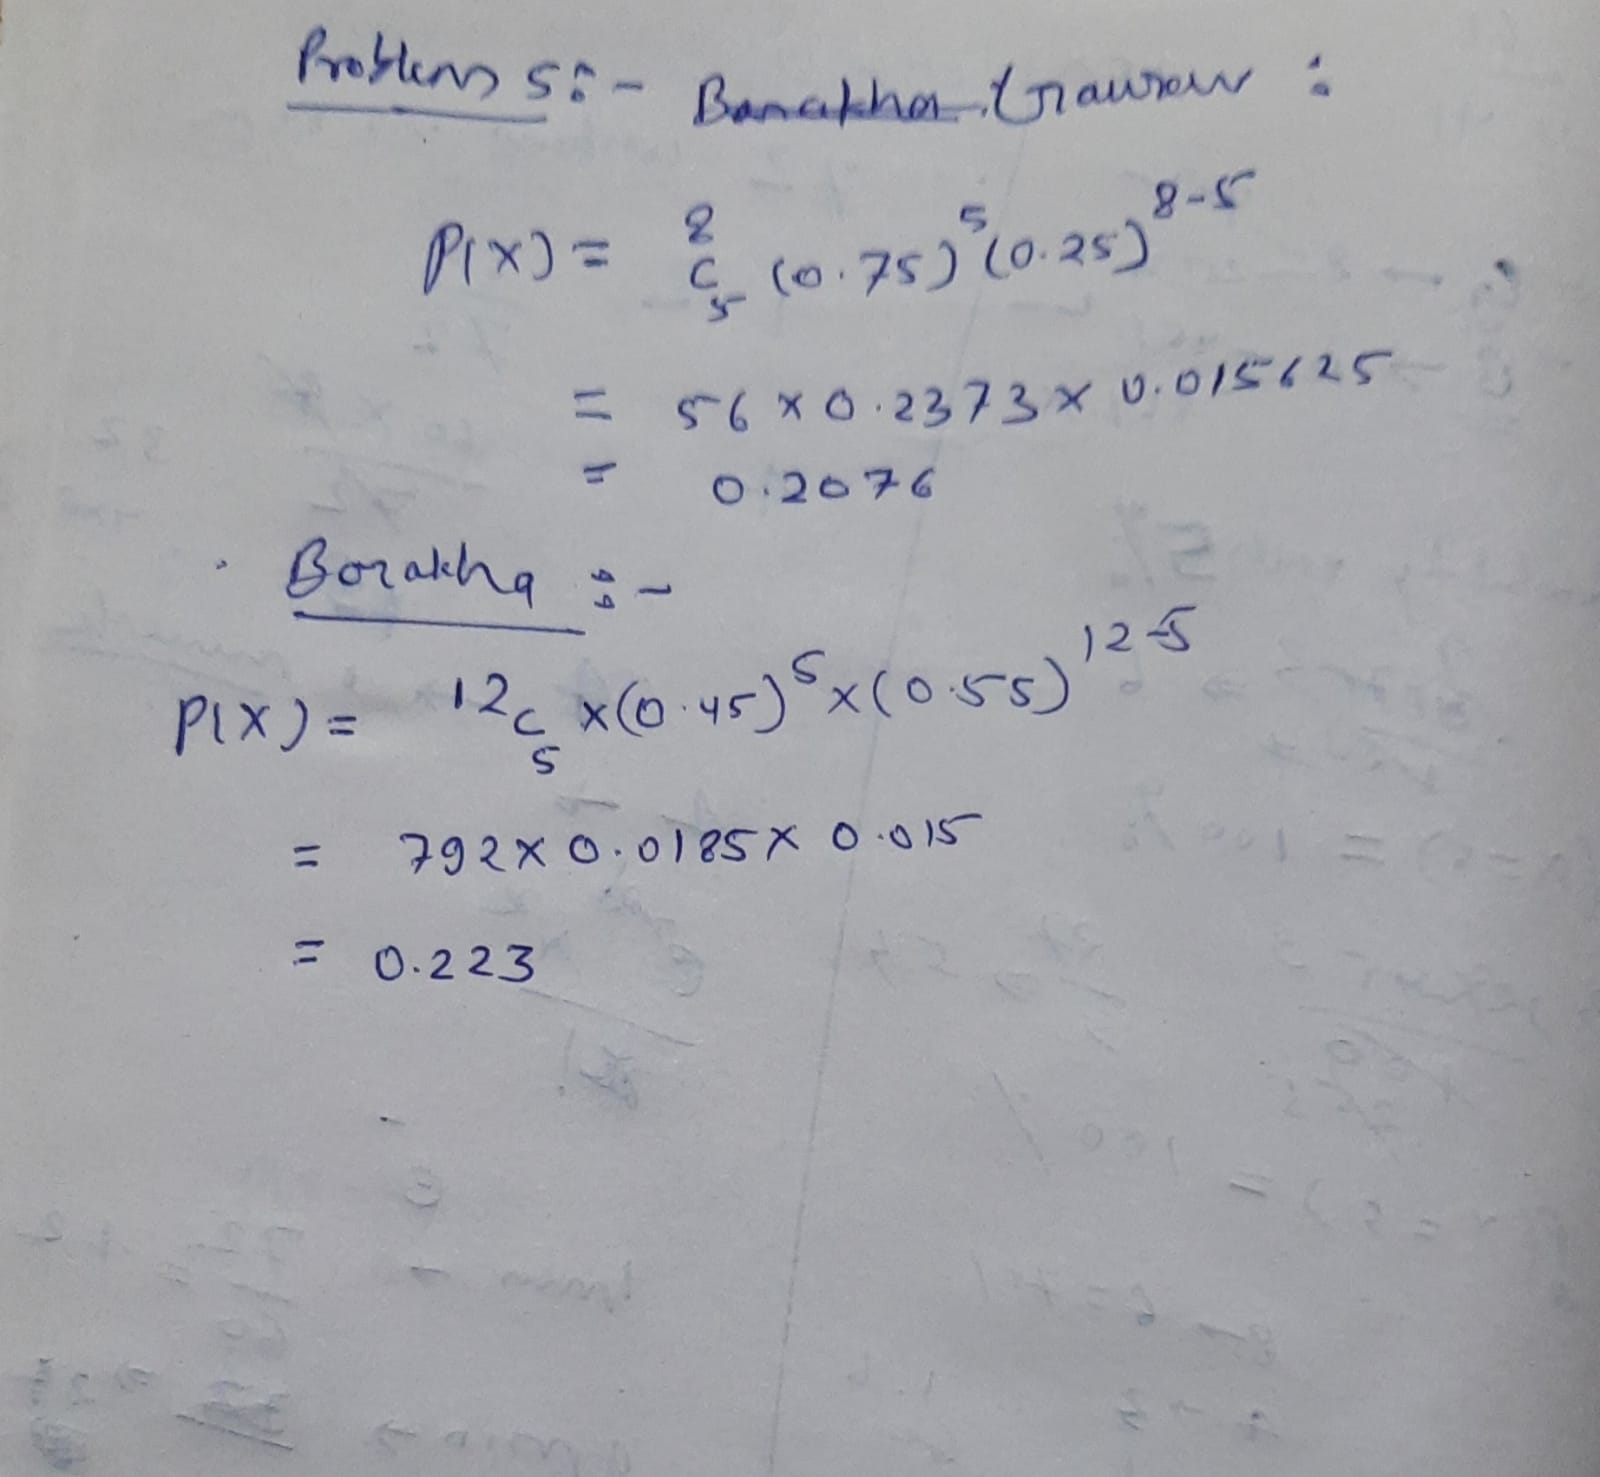 Problem 5:- Barakha Gaurav :
P(X) = 8C5 (0.75)^5 (0.25)^8-5
= 56 x 0.2373 x 0.015625
= 0.2076
Borakha :-
P(X) = 12C5 x (0.45)^5 x (0.55)^12-5
= 792 x 0.0185 x 0.015
= 0.223